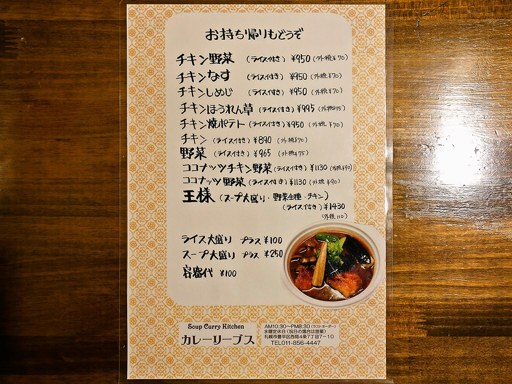 お持ち帰りもどうぞ
チキン野菜 (ライス付き) ¥950 (外税¥70)
チキンなす (ライス付き) ¥950 (外税¥70)
チキンしめじ (ライス付き) ¥950 (外税¥70)
チキンほうれん草 (ライス付き) ¥995
チキン焼ポテト (ライス付き) ¥950 (外税¥70)
チキン (ライス付き) ¥890
野菜 (ライス付き) ¥965
ココナッツチキン野菜 (ライス付き) ¥1130
ココナッツ野菜 (ライス付き) ¥1130 (外税¥90)
王様 (スープ大盛り・野菜全種・チキン)
(ライス付き) ¥1430
ライス大盛り プラス ¥100
スープ大盛り プラス ¥250
容器代 ¥100
Soup Curry Kitchen
カレーリーブス
AM10:30～PM8:30 (ラストオーダー)
水曜定休日 (祝日の場合は営業)
札幌市豊平区西岡4条7丁目7-10
TEL011-856-4447